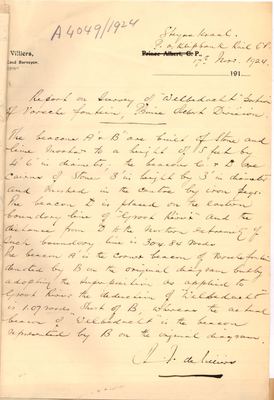 A4049/1924
Villiers,
Land Surveyor.
Prince Albert, C. P.,
17th Nov. 1924.
191
Report on Survey of "Welbedacht" Portion
of fontein, Prince Albert Division.
The beacons A & B are built of Stone and
lime to a height of 5 feet by
4' 6" in diameter; the beacons C & D are
Cairns of Stone 3' in height by 3' in diameter
and marked in the Centre by iron pegs.
The beacon D is placed on the eastern
boundary line of "Groot Rivier" and the
distance from D to the northern extremity of
such boundary line is 304.84 roods
The beacon A is the corner beacon of fontein
denoted by B on the original diagram but by
adopting the Superposition as applied to
Groot Rivier the deduction of "Welbedacht"
is 1.07 roods short of B, whereas the actual
beacon of "Welbedacht" is the beacon
represented by B on the original diagram.
de Villiers